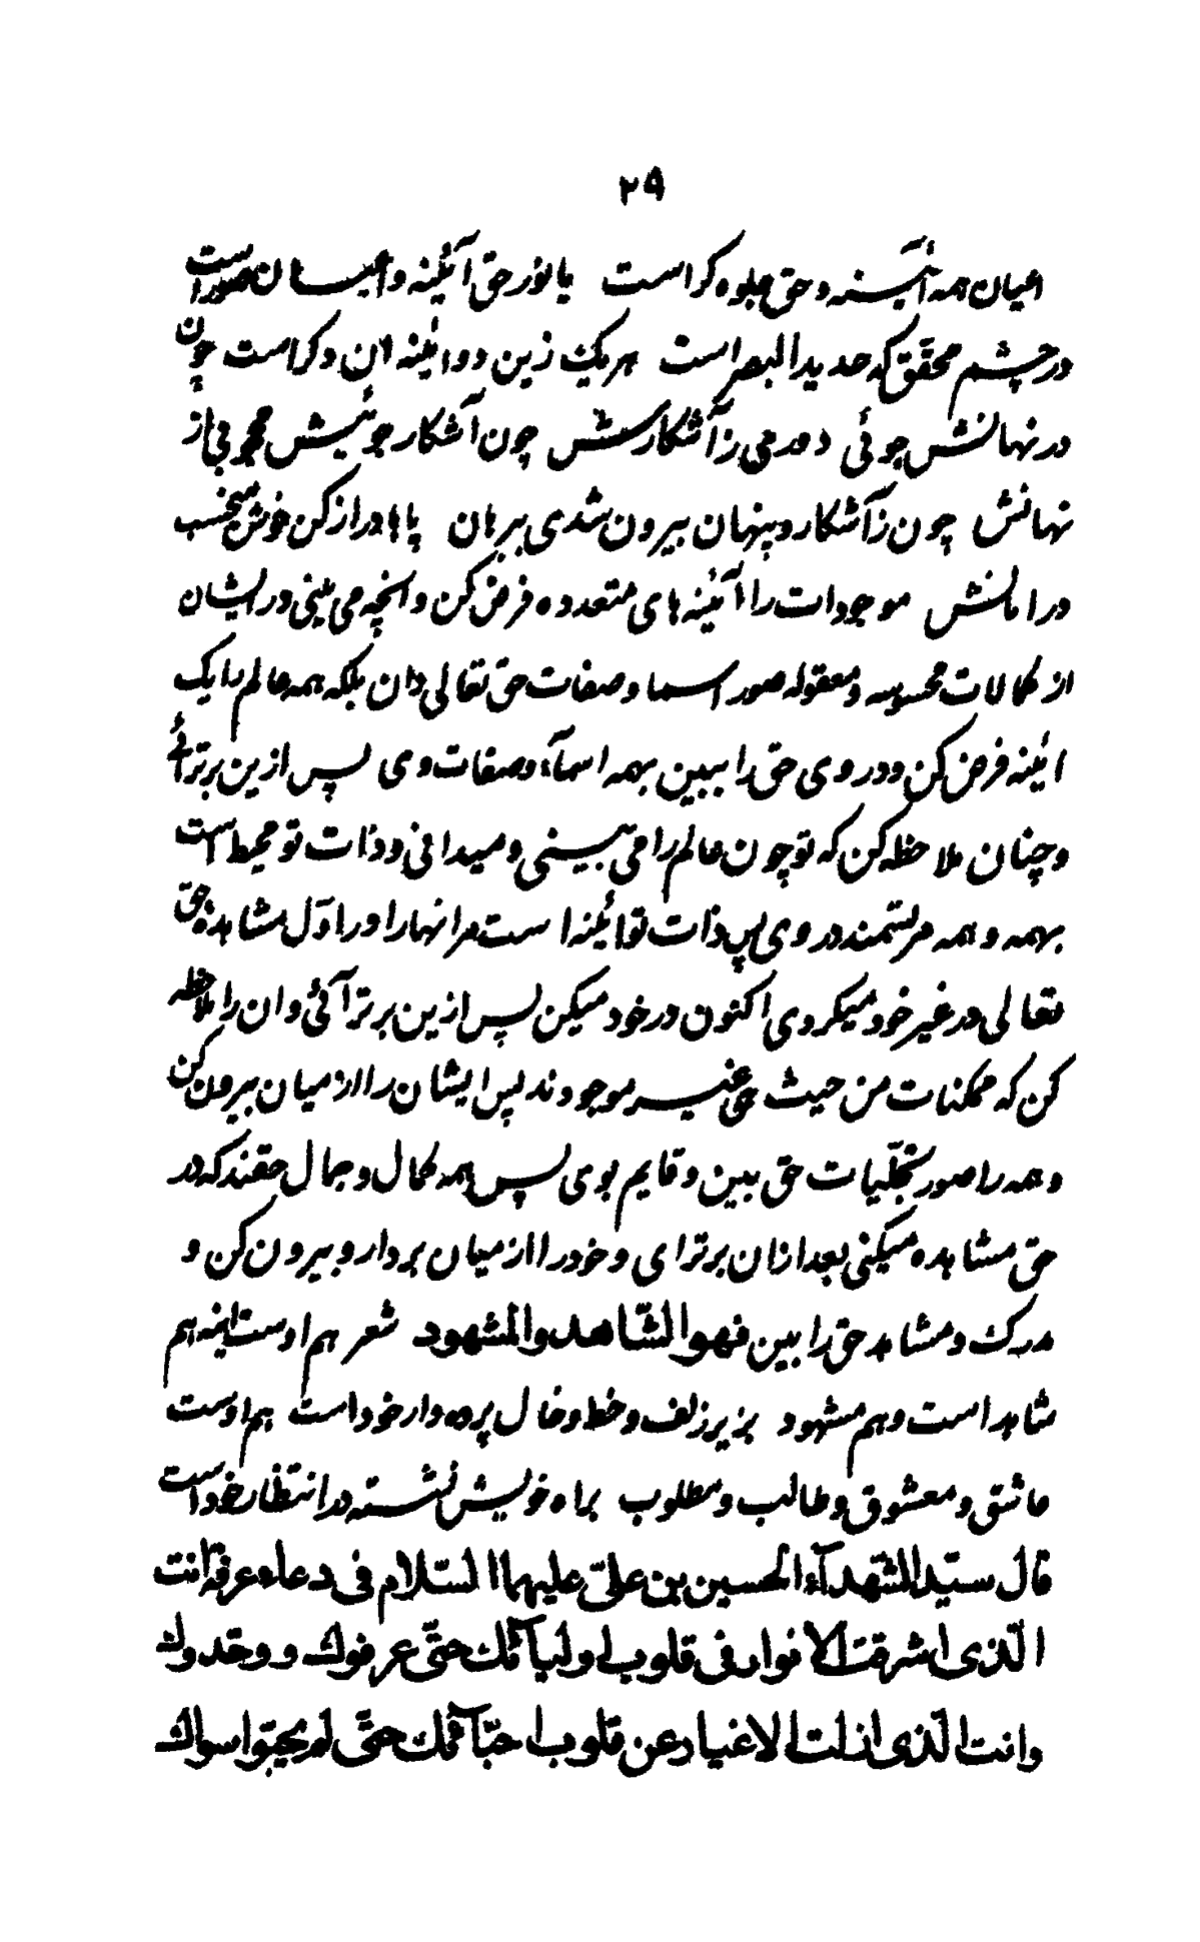 ۲۹
اعیان همه آئینه و حق جلوه کر است یا نور حق آئینه و اعیان صور است
در چشم محقق که حدید البصر است هر یک زین دو ائینه ان دکر است چون
در نهانش جوئی دور می ز آشکارش چون آشکار جوئیش محجوبی از
نهانش چون ز آشکار و پنهان بیرون شدی ببرهان پاها دراز کن خوش میخسب
در امانش موجودات را آئینه های متعدده فرض کن و انچه می بینی در ایشان
از کمالات محسوسه و معقوله صور اسما و صفات حق تعالی دان بلکه همه عالم را یک
ائینه فرض کن و در وی حق را ببین بهمه اسمآء و صفات وی پس ازین برتر آئی
و چنان ملاحظه کن که تو چون عالم را می بینی و میدانی و ذات تو محیط است
بهمه و همه مرتسمند در وی پس ذات تو ائینه است مر انها را و را اوّل مشاهده حق
تعالی در غیر خود میکردی اکنون در خود میکن پس ازین برتر آئی و ان را ملاحظه
کن که ممکنات من حیث هی غیر موجودند پس ایشان را از میان بیرون کن
و همه را صور تجلّیات حق بین و قایم بوی پس همه کمال و جمال حقند که در
حق مشاهده میکنی بعد ازان برتر ای و خود را از میان بردار و بیرون کن و
مدرک و مشاهد حق را بین فهو الشّاهد والمشهود شعر هم اوست ائینه هم
شاهد است و هم مشهود بزیر زلف و خط و خال پرده دار خود است هم اوست
عاشق و معشوق و طالب و مطلوب براه خویش نشسته در انتظار خود است
قال سیّد الشّهدآء الحسین بن علیّ علیهما السّلام فی دعاء عرفة انت
الّذی اشرقت الانوار فی قلوب اولیآئک حتّی عرفوک و وحّدوک
وانت الّذی ازلت الاغیار عن قلوب احبّآئک حتّی لم یحبّوا سواک